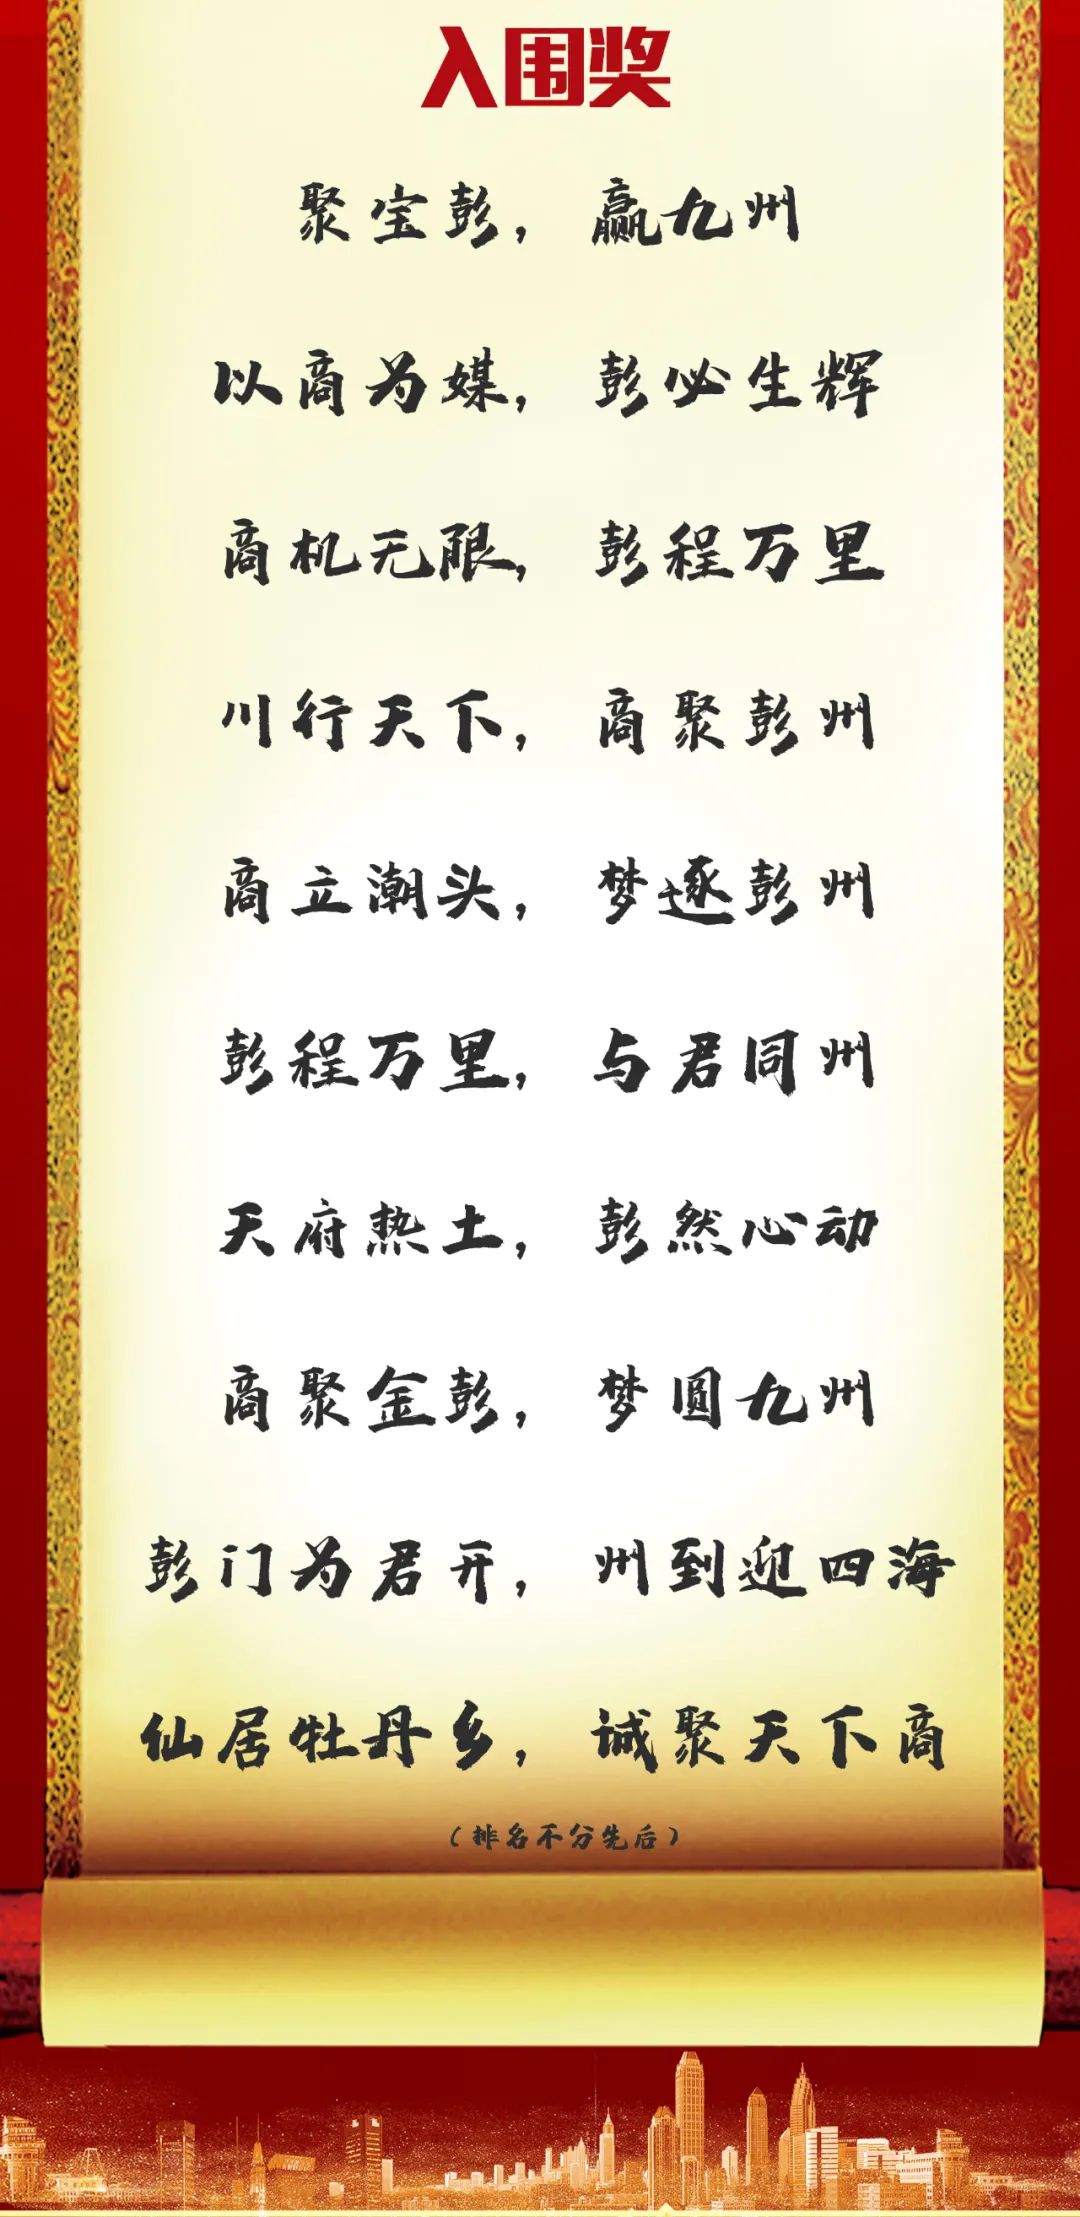 入围奖
聚宝彭，赢九州
以商为媒，彭必生辉
商机无限，彭程万里
川行天下，商聚彭州
商立潮头，梦逐彭州
彭程万里，与君同州
天府热土，彭然心动
商聚金彭，梦圆九州
彭门为君开，州到迎四海
仙居牡丹乡，诚聚天下商
（排名不分先后）